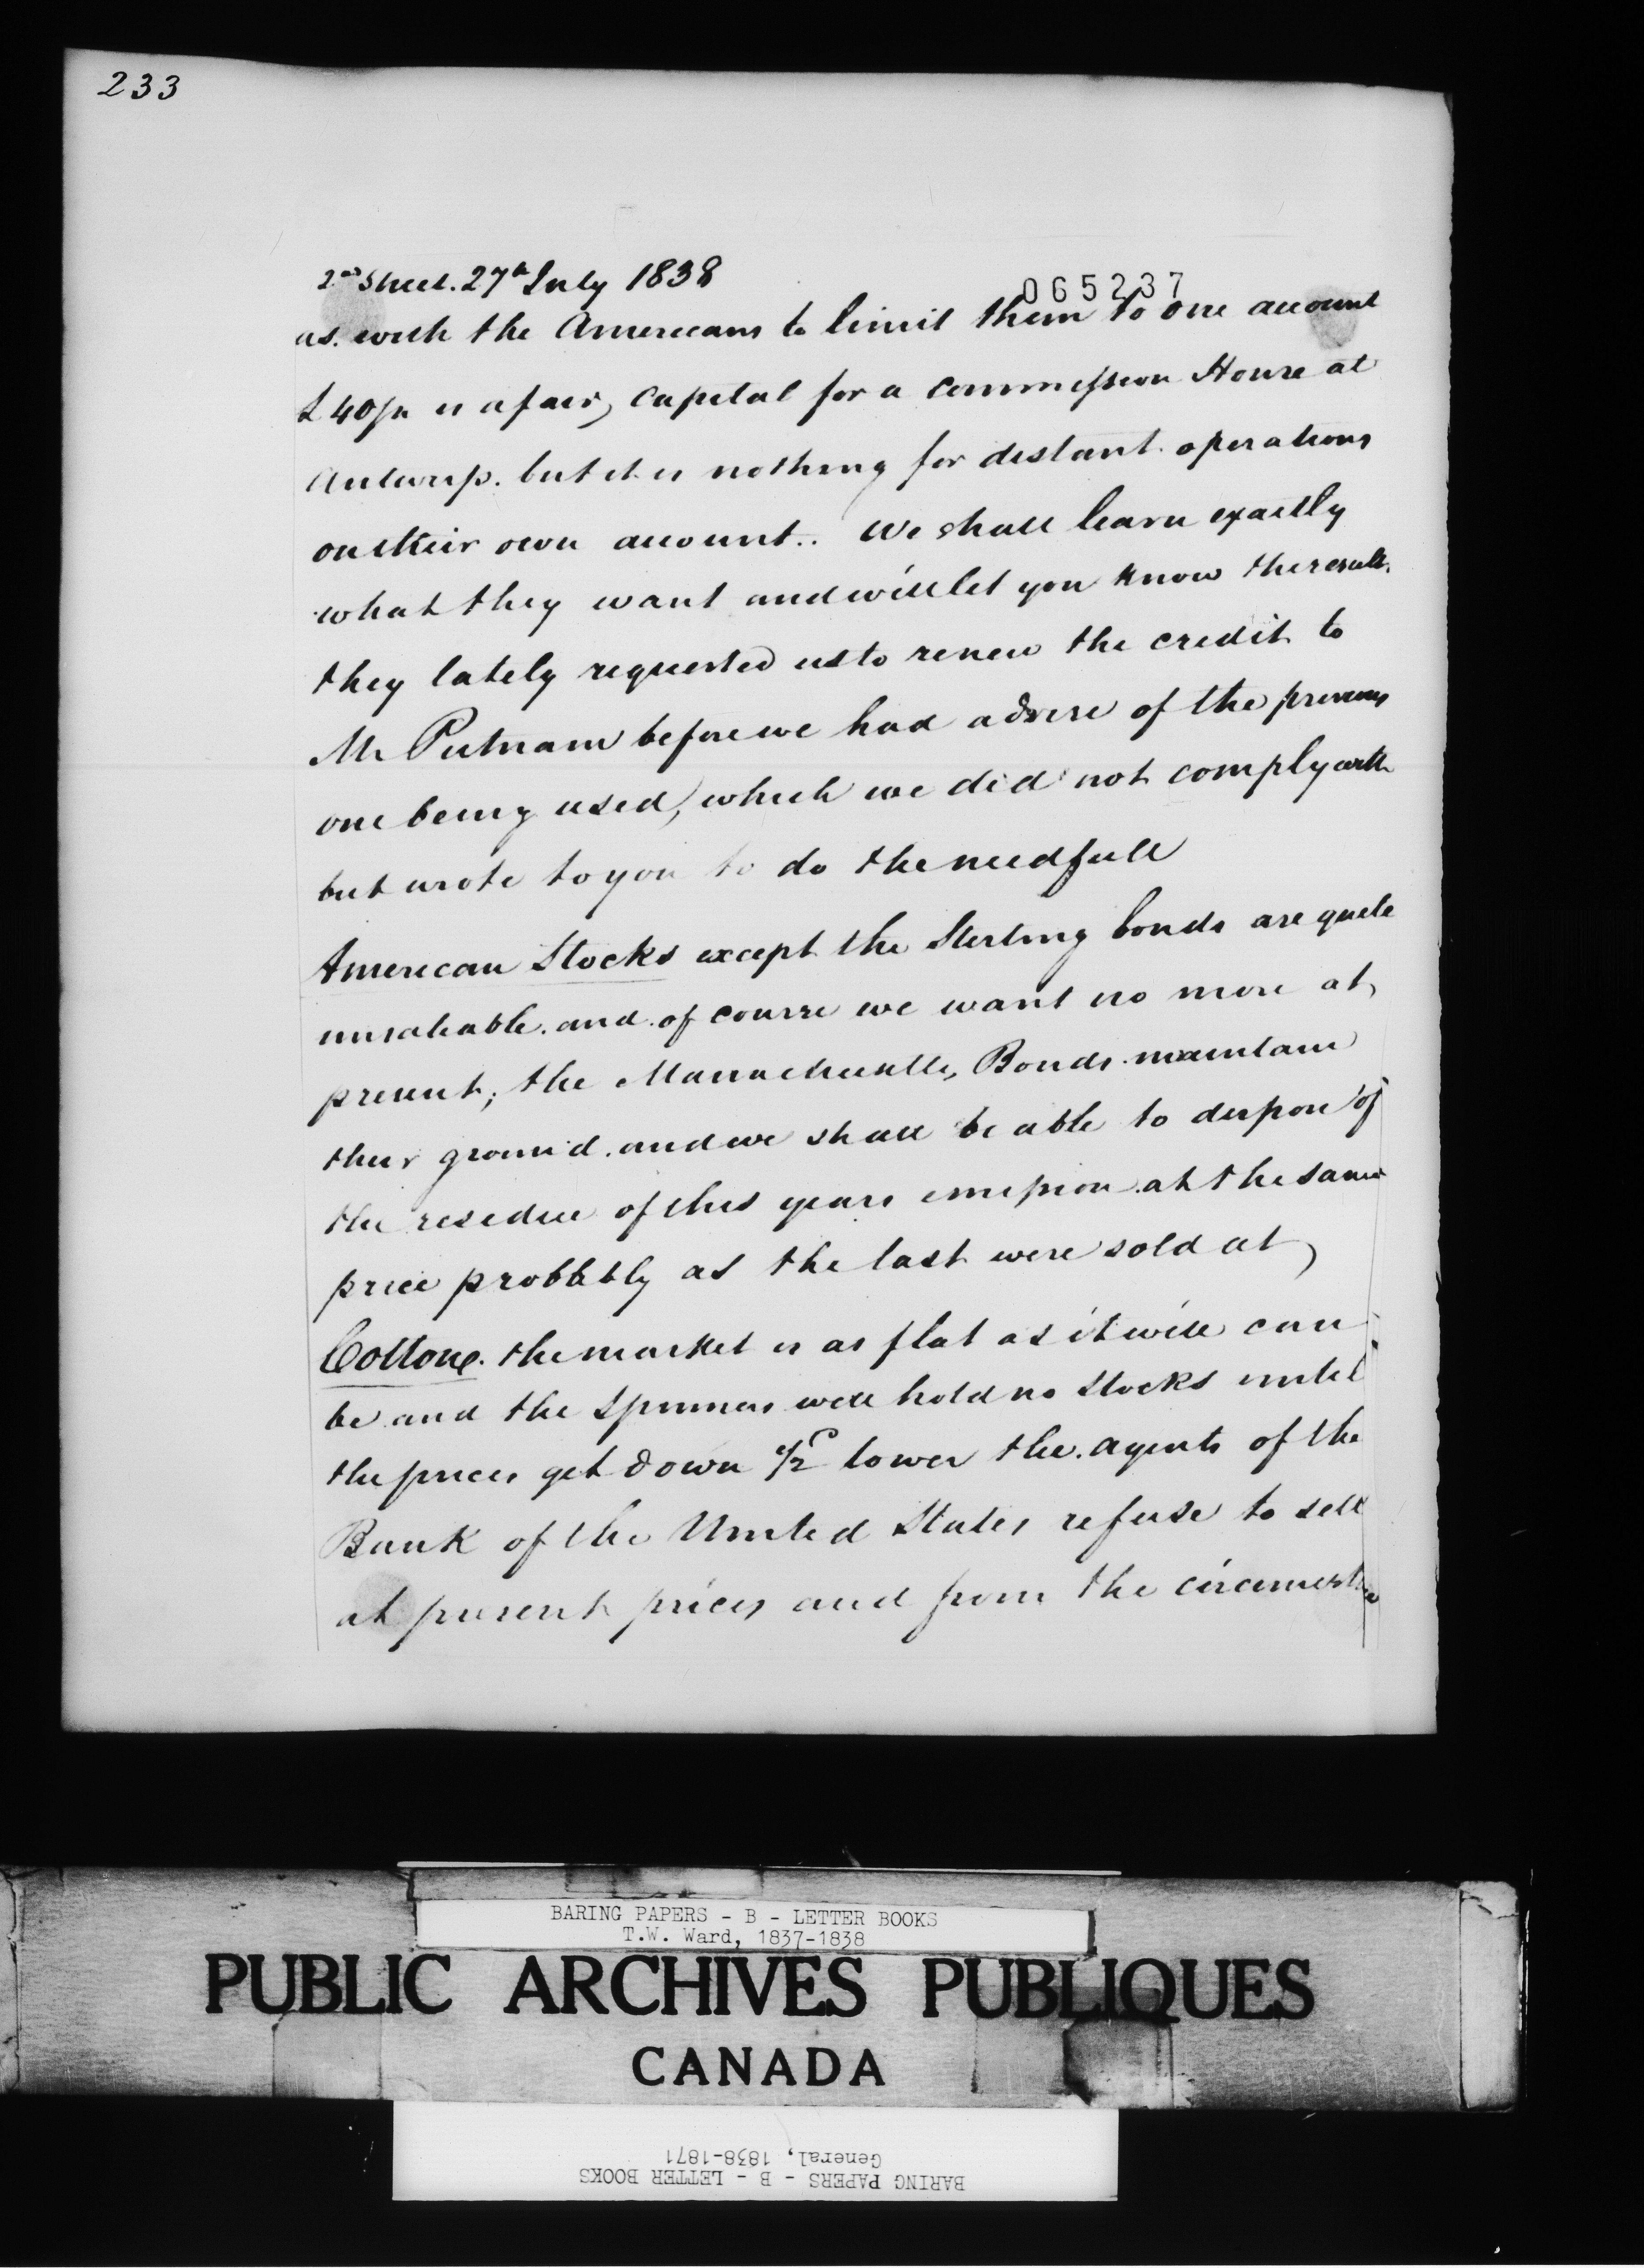 233
2nd Sheet. 27th July 1838
065237
as. with the Americans to limit them to one account
£40/m is a fair, Capital for a Commission House at
Antwerp. but it is nothing for distant operations
on their own account.. We shall learn exactly
what they want and will let you know the result.
they lately requested us to renew the credit to
Mr Putnam before we had advise of the previous
one being used, which we did not comply with
but wrote to you to do the needfull
American Stocks except the Sterling bonds are quite
unsaleable. and of course we want no more at,
present; the Massachusetts, Bonds maintain
their ground. and we shall be able to dispose of
the residue of this years emission at the same
price probbbly as the last were sold at,
Cottons. the market is as flat as it will can
be and the Spinners will hold no stocks until
the prices get down 1/2d lower the agents of the
Bank of the United States refuse to sell
at present prices and from the circumstce
BARING PAPERS - B - LETTER BOOKS
T.W. Ward, 1837-1838
PUBLIC ARCHIVES PUBLIQUES
CANADA
BARING PAPERS - B - LETTER BOOKS
General, 1838-1871